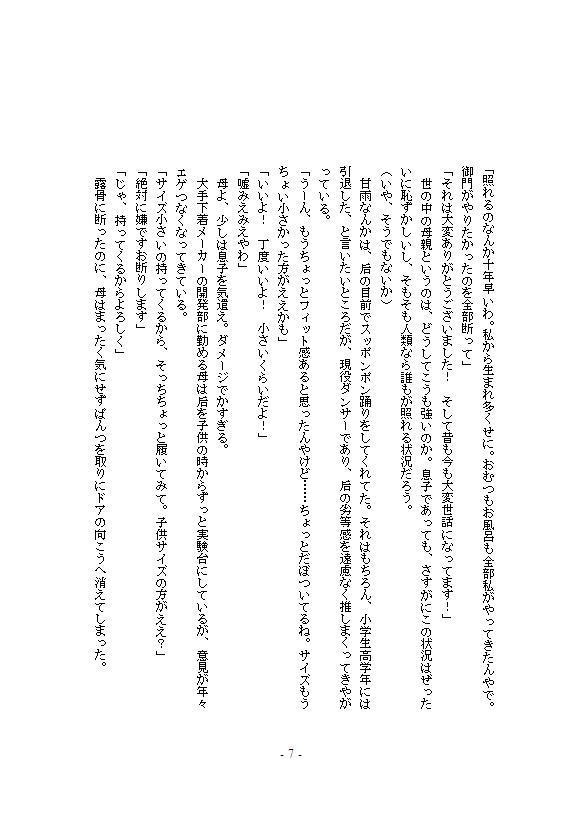 「照れるのなんか十年早いわ。私から生まれ多くせに。おむつもお風呂も全部私がやってきたんやで。
御門がやりたかったのを全部断って」
「それは大変ありがとうございました！　そして昔も今も大変世話になってます！」
世の中の母親というのは、どうしてこうも強いのか。息子であっても、さすがにこの状況はぜった
いに恥ずかしいし、そもそも人類なら誰もが照れる状況だろう。
（いや、そうでもないか）
甘雨なんかは、后の目前でスッポンポン踊りをしてくれてた。それはもちろん、小学生高学年には
引退した、と言いたいところだが、現役ダンサーであり、后の劣等感を遠慮なく推しまくってきやが
っている。
「うーん、もうちょっとフィット感あると思ったんやけど……ちょっとだぼついてるね。サイズもう
ちょい小さかった方がええかも」
「いいよ！　丁度いいよ！　小さいくらいだよ！」
「嘘みえみえやわ」
母よ、少しは息子を気遣え。ダメージでかすぎる。
大手下着メーカーの開発部に勤める母は后を子供の時からずっと実験台にしているが、意見が年々
エゲつなくなってきている。
「サイズ小さいの持ってくるから、そっちちょっと履いてみて。子供サイズの方がええ？」
「絶対に嫌ですお断りします」
「じゃ、持ってくるからよろしく」
露骨に断ったのに、母はまったく気にせずぱんつを取りにドアの向こうへ消えてしまった。
- 7 -